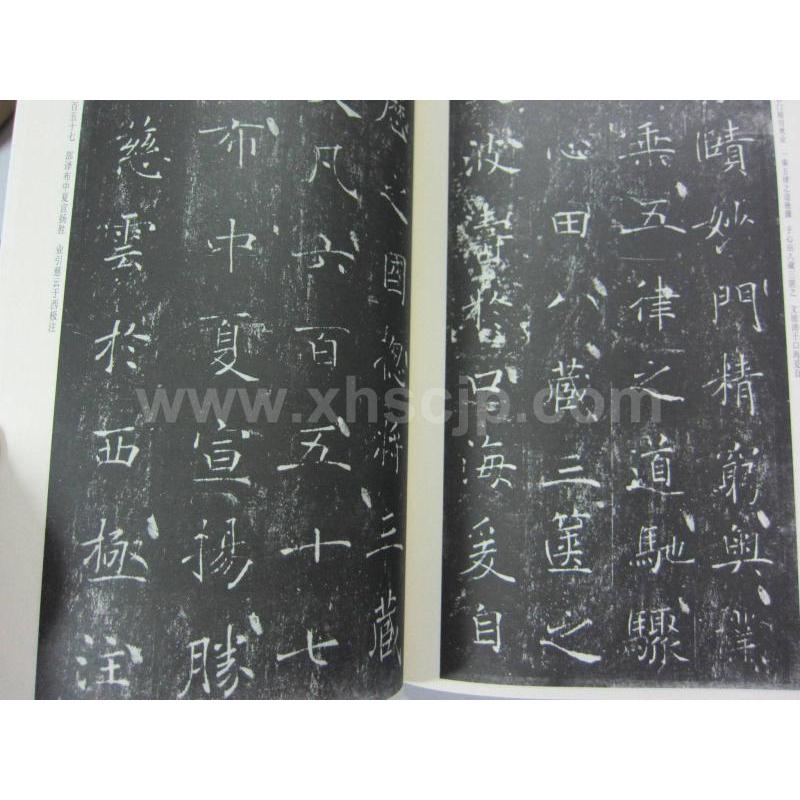 精穷奥业 一乘五律之道驰骤 于心田八藏三箧之 文波涛于口海爰自
賾妙門精窮奥業
乘五律之道馳驟
心田八藏三篋之
波濤於口海爰自
歷之國總將三藏
凡六百五十七
布中夏宣揚勝
慈雲於西極注
百五十七 部译布中夏宣扬胜 业引慈云于西极注
www.xhscjp.com